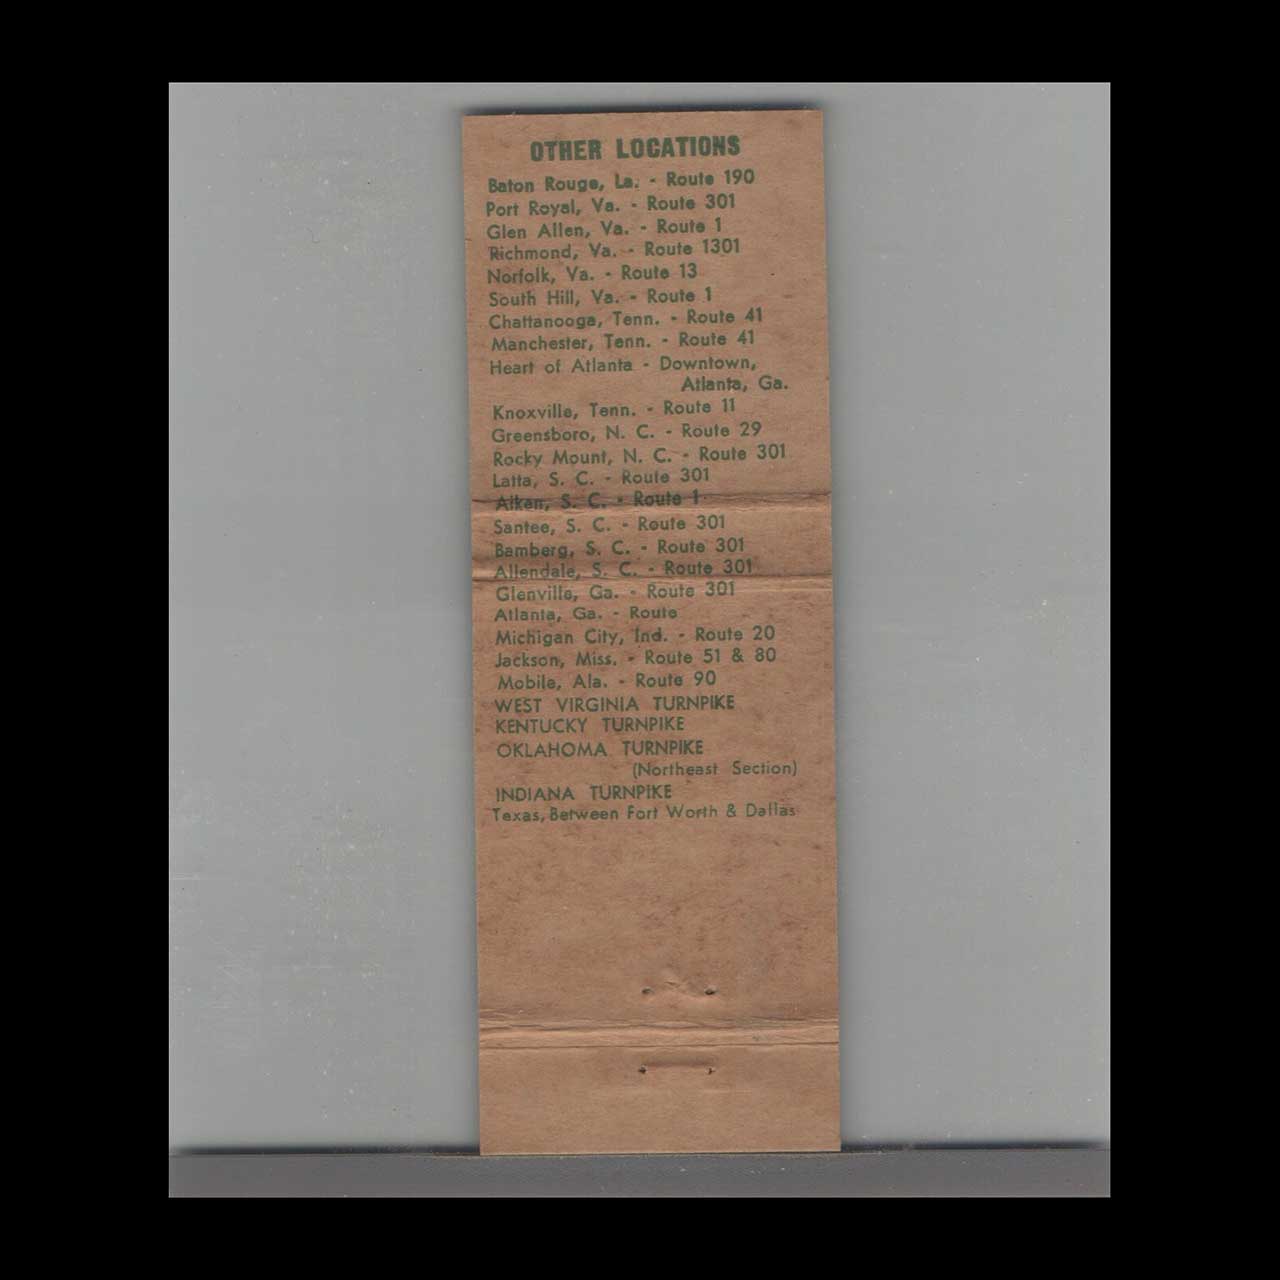 OTHER LOCATIONS
Baton Rouge, La. - Route 190
Port Royal, Va. - Route 301
Glen Allen, Va. - Route 1
Richmond, Va. - Route 1301
Norfolk, Va. - Route 13
South Hill, Va. - Route 1
Chattanooga, Tenn. - Route 41
Manchester, Tenn. - Route 41
Heart of Atlanta - Downtown,
Atlanta, Ga.
Knoxville, Tenn. - Route 11
Greensboro, N. C. - Route 29
Rocky Mount, N. C. - Route 301
Latta, S. C. - Route 301
Aiken, S. C. - Route 1
Santee, S. C. - Route 301
Bamberg, S. C. - Route 301
Allendale, S. C. - Route 301
Glenville, Ga. - Route 301
Atlanta, Ga. - Route
Michigan City, Ind. - Route 20
Jackson, Miss. - Route 51 & 80
Mobile, Ala. - Route 90
WEST VIRGINIA TURNPIKE
KENTUCKY TURNPIKE
OKLAHOMA TURNPIKE
(Northeast Section)
INDIANA TURNPIKE
Texas, Between Fort Worth & Dallas